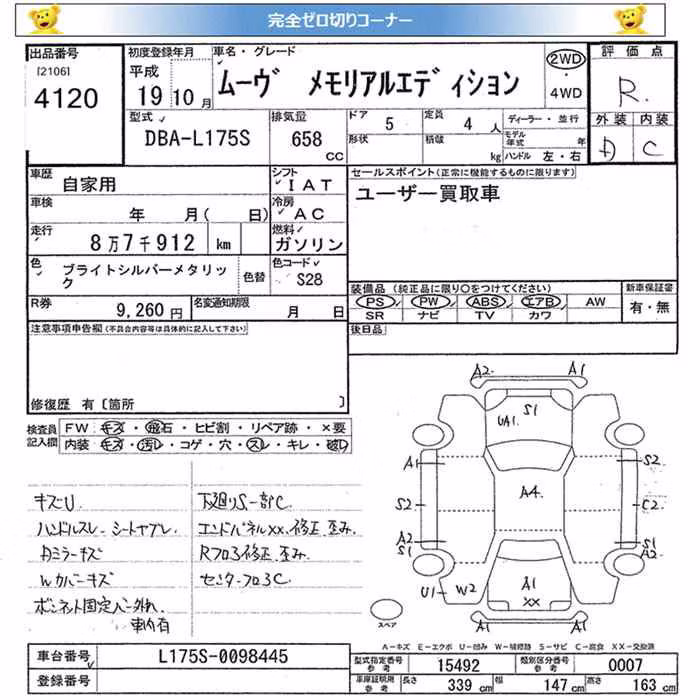 完全ゼロ切りコーナー
出品番号 初度登録年月 車名・グレード 評価点
[2106] 平成 ムーヴ メモリアルエディション 2WD・4WD R.
4120 19 10月
型式 排気量 ドア 5 定員 4 人 ディーラー・並行 外装 内装
DBA-L175S 658 CC 形状 積載 kg モデル年式 年 D C
ハンドル 左・右
車歴 自家用 シフト IAT セールスポイント(正常に機能するものに限ります)
車検 年 月( 日) 冷房 AC ユーザー買取車
走行 8万7千912 km 燃料 ガソリン
色 ブライトシルバーメタリック 色替 色コード S28
装備品 (純正品に限り○をつけてください) 新車保証書
R券 9,260円 名変通知期限 月 日 PS PW ABS エアB AW 有・無
SR ナビ TV カワ
注意事項申告欄(不具合内容等は具体的に記入して下さい) 後日品
修復歴 有 [箇所 ]
検査員記入欄 FW キズ・飛石・ヒビ割・リペア跡・×要
内装 キズ・汚レ・コゲ・穴・スレ・キレ・破レ
キズU 下廻りS一部C
ハンドルスレ シートヤブレ エンドパネルXX.修正.歪み.
Dミラーキズ Rフロ3修正.歪み.
Wカバーキズ センターフロ3C
ボンネット固定バー外れ
車内有
A2 A1
S1
UA1.
A1 S2
S2 A4 C2
A2 S1
S1 A2
U1 W2 A1
XX
スペア
A-キズ E-エクボ U-凹み W-補修跡 S-サビ C-腐食 XX-交換済
車台番号 L175S-0098445 型式指定番号 参考 15492 類別区分番号 参考 0007
登録番号 車庫証明用 参考 長さ 339 cm 幅 147 cm 高さ 163 cm